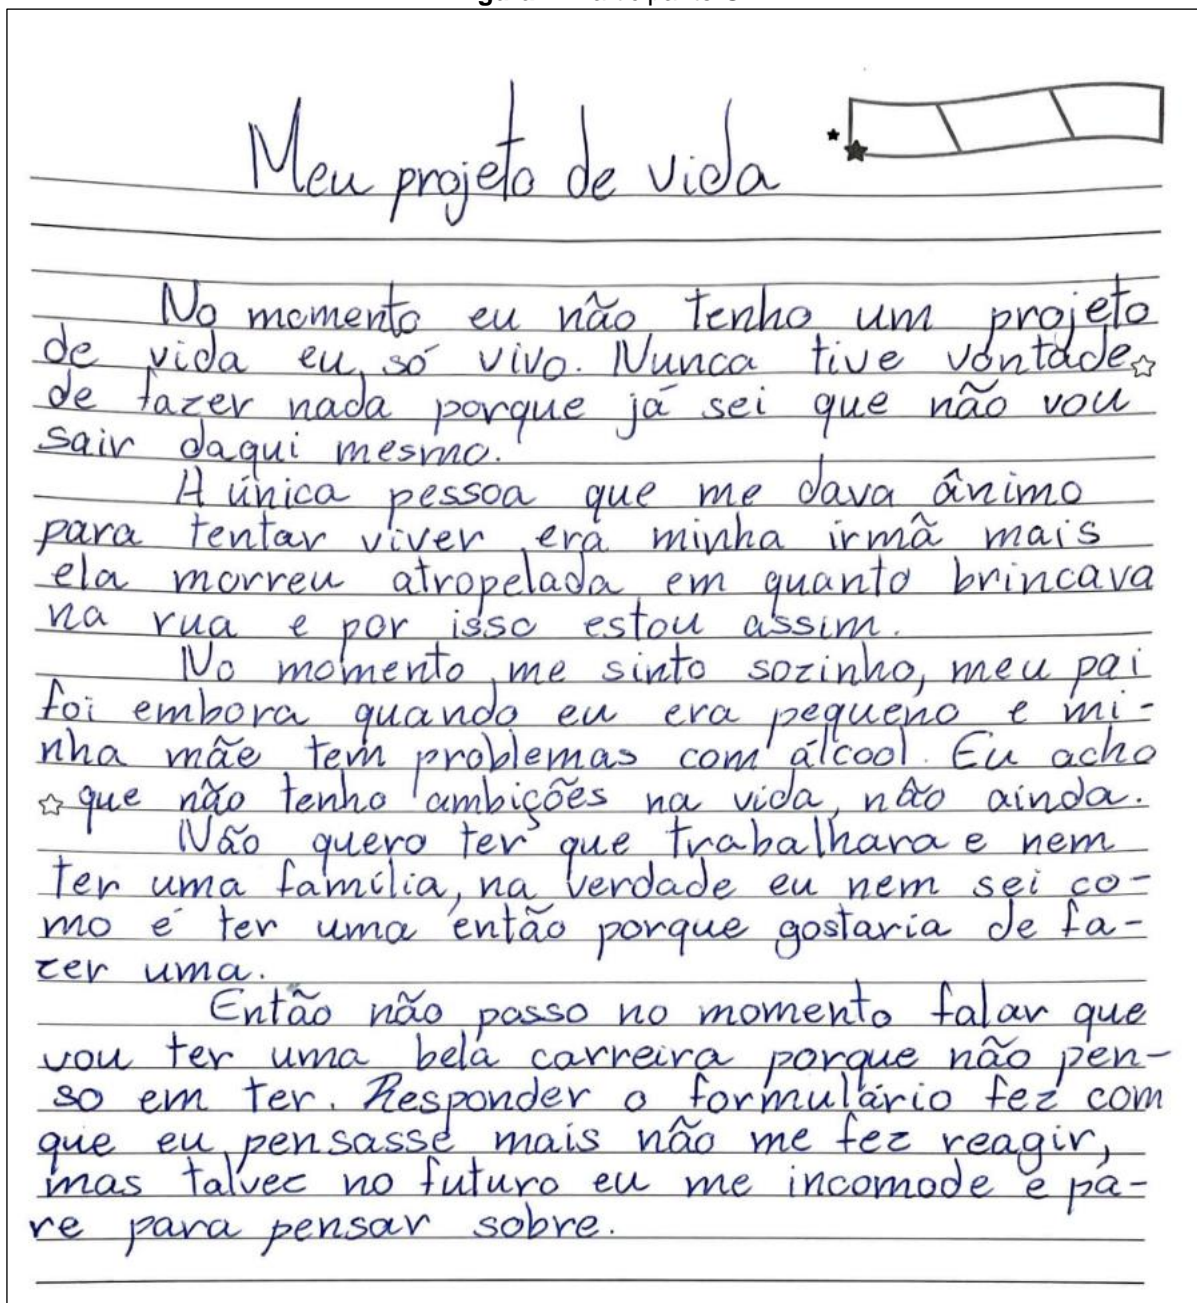 Meu projeto de vida
No momento eu não tenho um projeto
de vida eu só vivo. Nunca tive vontade
de fazer nada porque já sei que não vou
sair daqui mesmo.
A única pessoa que me dava ânimo
para tentar viver era minha irmã mais
ela morreu atropelada em quanto brincava
na rua e por isso estou assim.
No momento me sinto sozinho, meu pai
foi embora quando eu era pequeno e mi-
nha mãe tem problemas com álcool. Eu acho
que não tenho ambições na vida, não ainda.
Não quero ter que trabalhara e nem
ter uma família, na verdade eu nem sei co-
mo é ter uma então porque gostaria de fa-
zer uma.
Então não posso no momento falar que
vou ter uma bela carreira porque não pen-
so em ter. Responder o formulário fez com
que eu pensasse mais não me fez reagir,
mas talvez no futuro eu me incomode e pa-
re para pensar sobre.